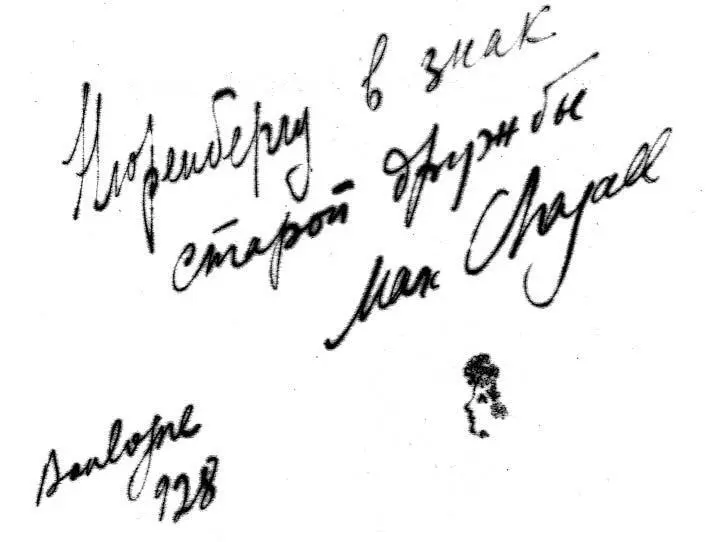 Нюренбергу в знак
старой дружбы
Мах Chagall
Boulogne
928